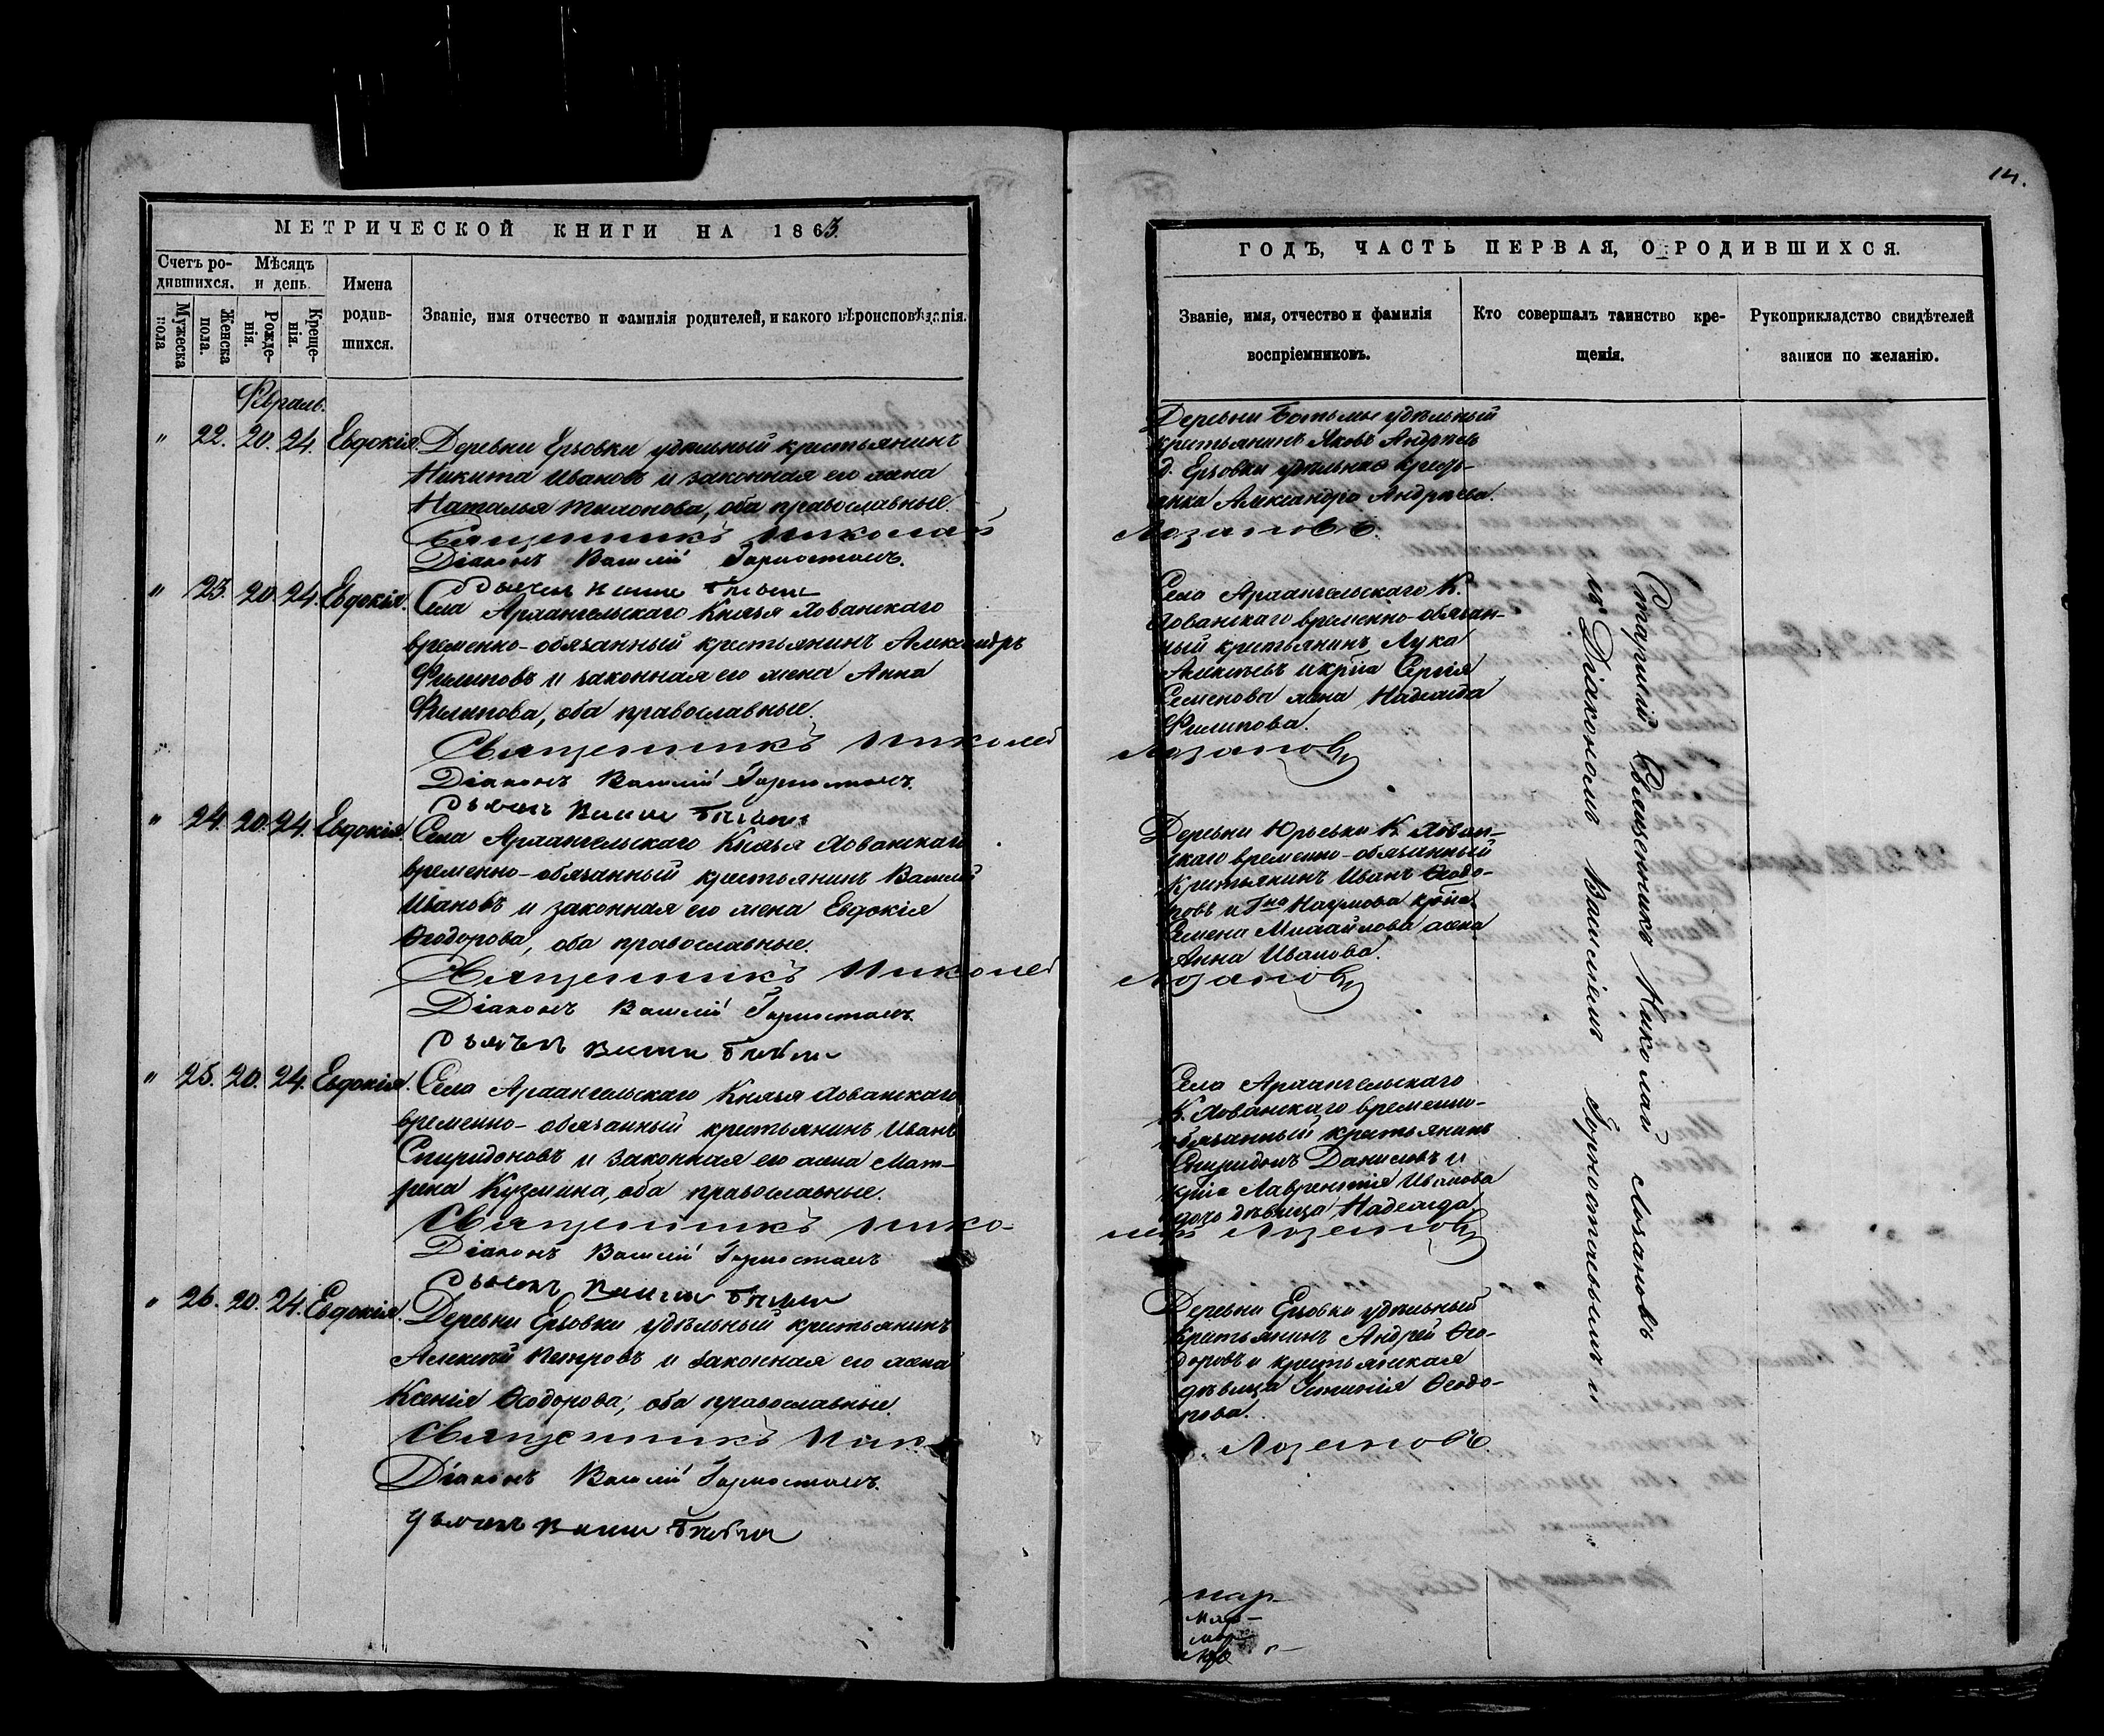 МЕТРИЧЕСКОЙ КНИГИ НА 1863.
Счетъ родившихся.
Мужеска пола
Женска пола.
Мѣсяцъ и день.
Рожденія.
Крещенія.
Имена родившихся.
Званіе, имя отчество и фамилія родителей, и какого вѣроисповѣданія.
Февраль.
" 22. 20. 24. Евдокія.
Деревни Ерзовки удѣльный крестьянинъ
Никита Ивановъ и законная его жена
Наталья Тихонова, оба православные.
Священникъ Николай
Діаконъ Василій Горностаевъ.
" 23. 20. 24. Евдокія.
Села Архангельскаго Князя Хованскаго
временно-обязанный крестьянинъ Александръ
Филиповъ и законная его жена Анна
Филипова, оба православные.
Священникъ Николай
Діаконъ Василій Горностаевъ.
" 24. 20. 24. Евдокія.
Села Архангельскаго Князя Хованскаго
временно-обязанный крестьянинъ Василій
Ивановъ и законная его жена Евдокія
Ѳеодорова, оба православные.
Священникъ Николай
Діаконъ Василій Горностаевъ.
" 25. 20. 24. Евдокія.
Села Архангельскаго Князя Хованскаго
временно-обязанный крестьянинъ Иванъ
Спиридоновъ и законная его жена Мат-
рена Кузмина, оба православные.
Священникъ Нико-
Діаконъ Василій Горностаевъ
" 26. 20. 24. Евдокія.
Деревни Ерзовки удѣльный крестьянинъ
Алексѣй Петровъ и законная его жена
Ксенія Ѳеодорова, оба православные.
Священникъ Ник
Діаконъ Василій Горностаевъ.
14.
ГОДЪ, ЧАСТЬ ПЕРВАЯ, О РОДИВШИХСЯ.
Званіе, имя, отчество и фамилія воспріемниковъ.
Кто совершалъ таинство крещенія.
Рукоприкладство свидѣтелей записи по желанію.
Деревни Ботьмы удѣльный
крестьянинъ Яковъ Андреевъ
д. Ерзовки удѣльная кресть-
янка Александра Андреева.
Лозановъ.
Села Архангельскаго К.
Хованскаго временно-обязан-
ный крестьянинъ Лука
Алексѣевъ и Сергія
Семенова жена Надежда
Филипова.
Лозановъ
Деревни Юрьевки К. Хован-
скаго временно-обязанный
крестьянинъ Иванъ Ѳеодо-
ровъ и Гна Наумова
Семена Михайлова жена
Анна Иванова.
Лозановъ
Села Архангельскаго
К. Хованскаго временно-
обязанный крестьянинъ
Спиридонъ Даниловъ и
Лаврентія Иванова
дочь дѣвица Надежда.
лай Лозановъ
Деревни Ерзовки удѣльный
крестьянинъ Андрей Ѳео-
доровъ и крестьянская
дѣвица Устинія Ѳеодо-
рова.
Лозановъ.
Старшій Священникъ Николай Лозановъ
съ Діакономъ Василіемъ Горностаевымъ и